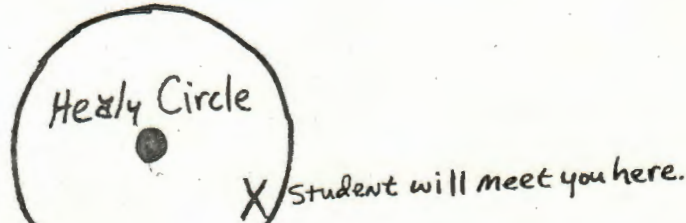 Healy Circle
X Student will meet you here.